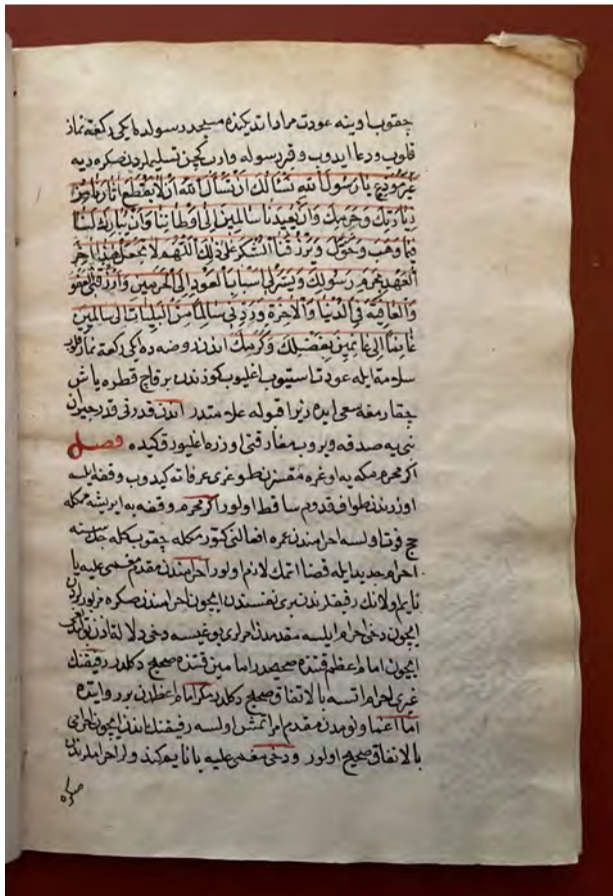 چقوب اوینه عودت مراد اتدیکنده مسجد رسولده ایکی رکعة نماز
قلوب ودعا ایدوب وقبر رسوله وارب کچن تسلیملردن صکره دیه
غیر مودع یا رسول الله نسألك ان تسأل الله ان لا یقطع آثارنا من
زیارتك وحرمك وان یعیدنا سالمین الی اوطاننا وان یبارك لنا
فیما وهب وخول ویرزقنا الشکر علی ذلك اللهم لا تجعل هذا آخر
العهد بحرم رسولك ویسر لی اسباب العود الی الحرمین وارزقنی العفو
والعافیة فی الدنیا والآخرة وردنی سالما من البلیات الی سالمین
غانما الی غانمین بفضلك وکرمك اندن روضه ده ایکی رکعة نماز قلور
سلامة ایله عودت استیوب اغلیوب کوزندن برقاچ قطره یاش
چقارمغه سعی ایده زیرا قبوله علامتدر اندن قدرتی قدر جیران
نبی یه صدقه ویروب مفارقتی اوزره اغلیورق کیده فصل
اکر محرم مکه یه اوغرمقسزن طوغری عرفاته کیدوب وقفه ایلسه
اوزرندن طواف قدوم ساقط اولور اکر محرم وقفه یه ایریشه ممکله
حج فوت اولسه احرامندن عمره افعالنی کتورمکله چقوب کله جك سنه
احرام جدید ایله قضا اتمك لازم اولور احرامندن مقدم مغمی علیه یا
نایم اولانك رفیقلرندن بری نفسندن ایچون احرامندن صکره
ایچون دخی احرام ایلسه مقدمدن احرامی بوغیسه دخی دلالة اذن
ایچون امام اعظم قتنده صحیحدر امامین قتنده صحیح دکلدر رفیقنك
غیری احرام اتسه بالاتفاق صحیح دکلدر مکر امام اعظمدن بر روایتده
اما اغما ونومدن مقدم امر اتمش اولسه رفیقنك انلر ایچون احرامی
بالاتفاق صحیح اولور ودخی مغمی علیه یا نایم کندولر احراملرندن
صکره